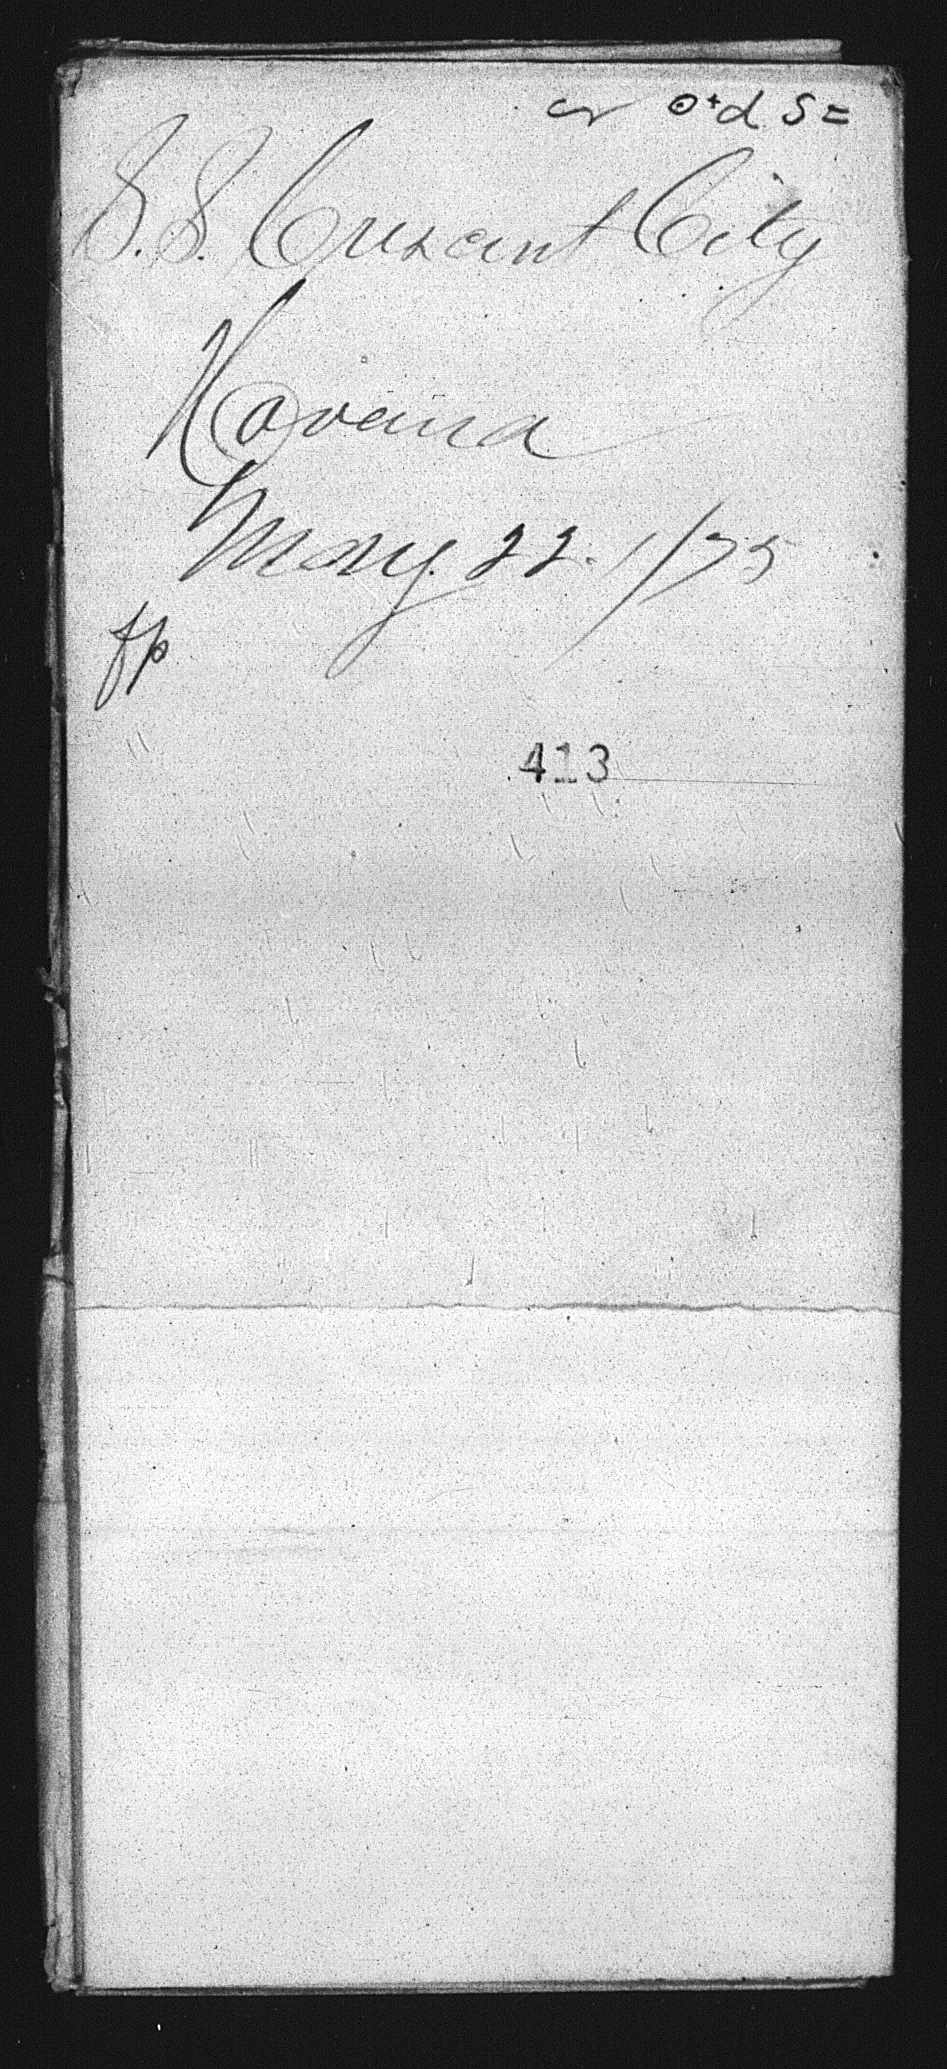 S.S. Crescent City
Havana
May 22. 1/75
fp
413